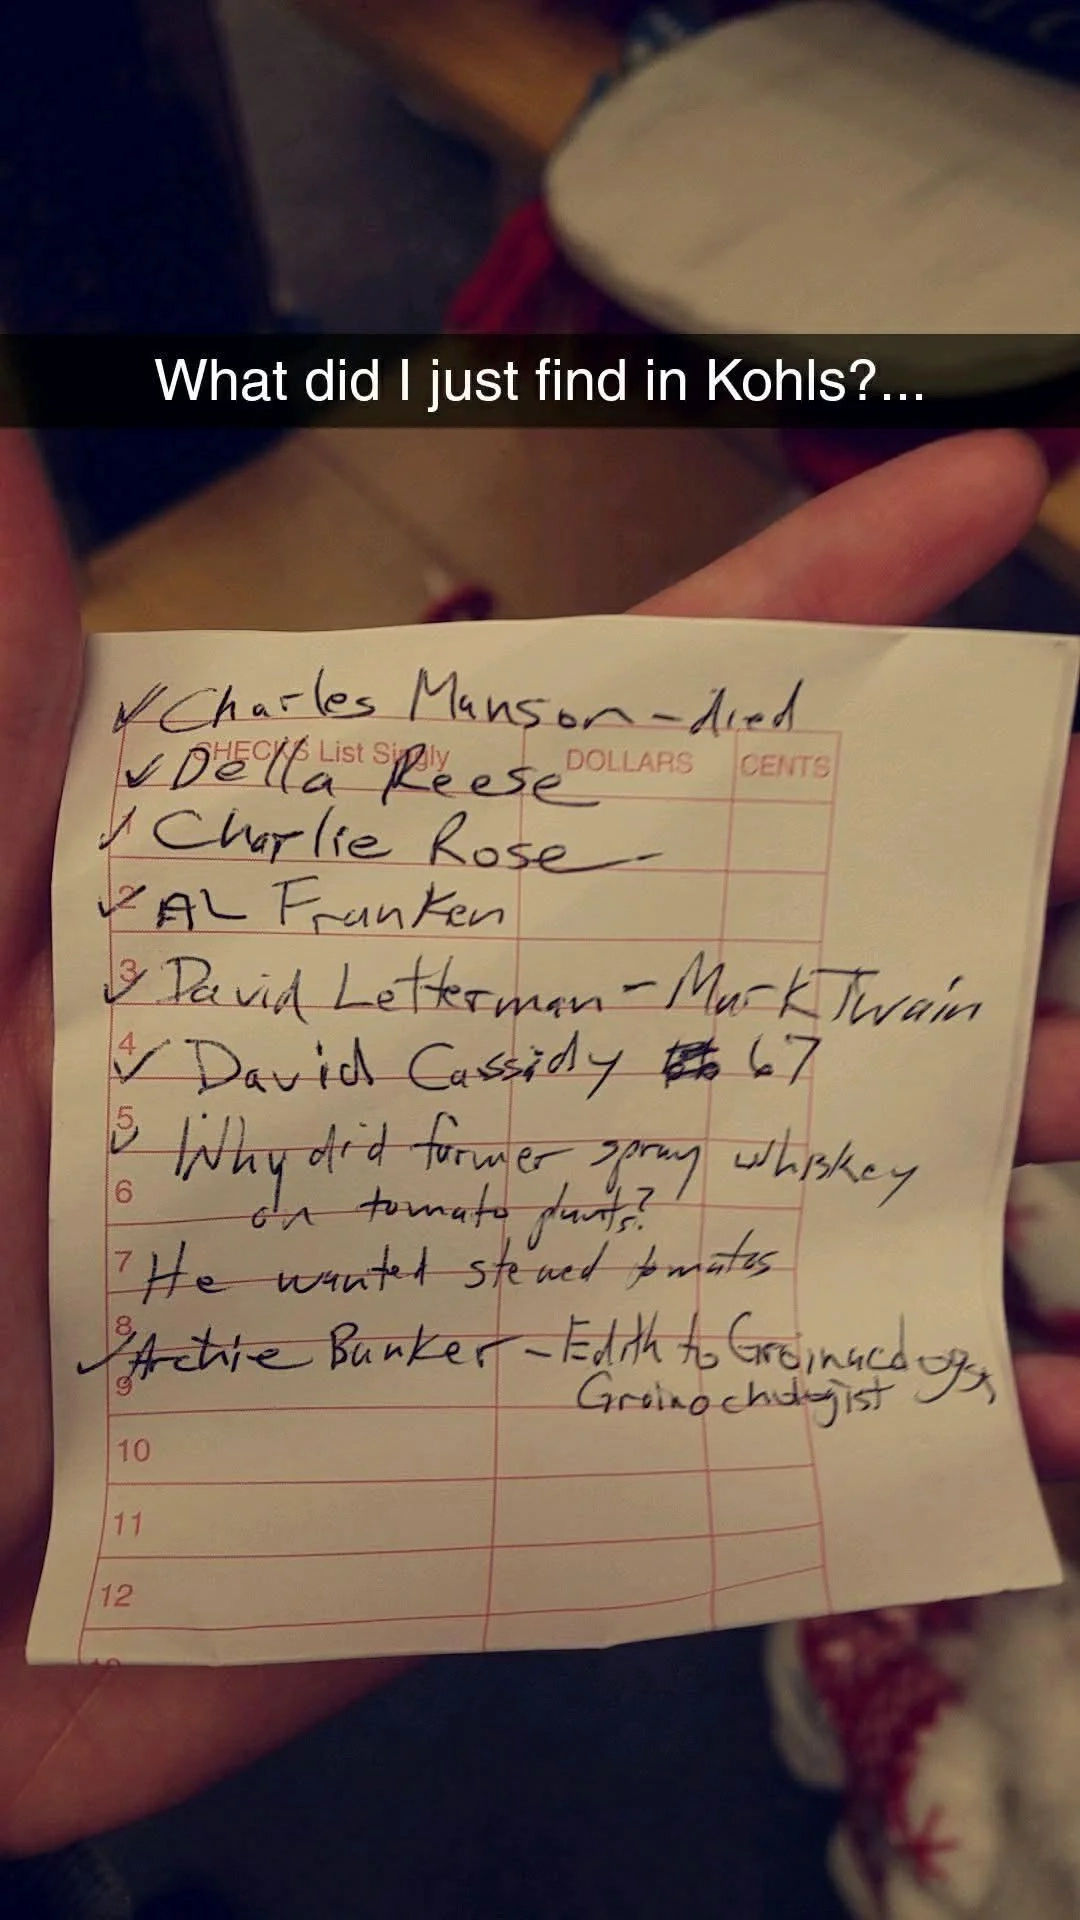 What did I just find in Kohls?...
✓ Charles Manson - died
CHECKS List Singly DOLLARS CENTS
✓ Della Reese
1 ✓ Charlie Rose -
2 ✓ AL Franken
3 ✓ David Letterman - Mark Twain
4 ✓ David Cassidy 67
5 ✓ Why did former spray whiskey
6 on tomato plants?
7 He wanted stewed tomatos
8 ✓ Archie Bunker - Edith to
9
10
11
12